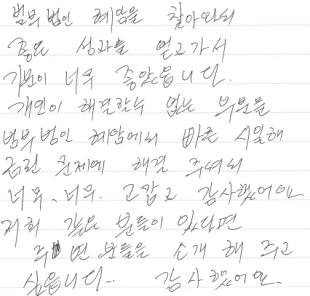 법무법인 혜암을 찾아와서
좋은 성과를 얻고가서
기분이 너무 좋았습니다.
개인이 해결할수 없는 부분을
법무법인 혜암에서 빠른 시일해
걸린 문제에 해결 주셔서
너무, 너무, 고맙고 감사했어요
저희 같은 분들이 있다면
주변 분들을 소개 해 주고
싶습니다.. 감사했어요.